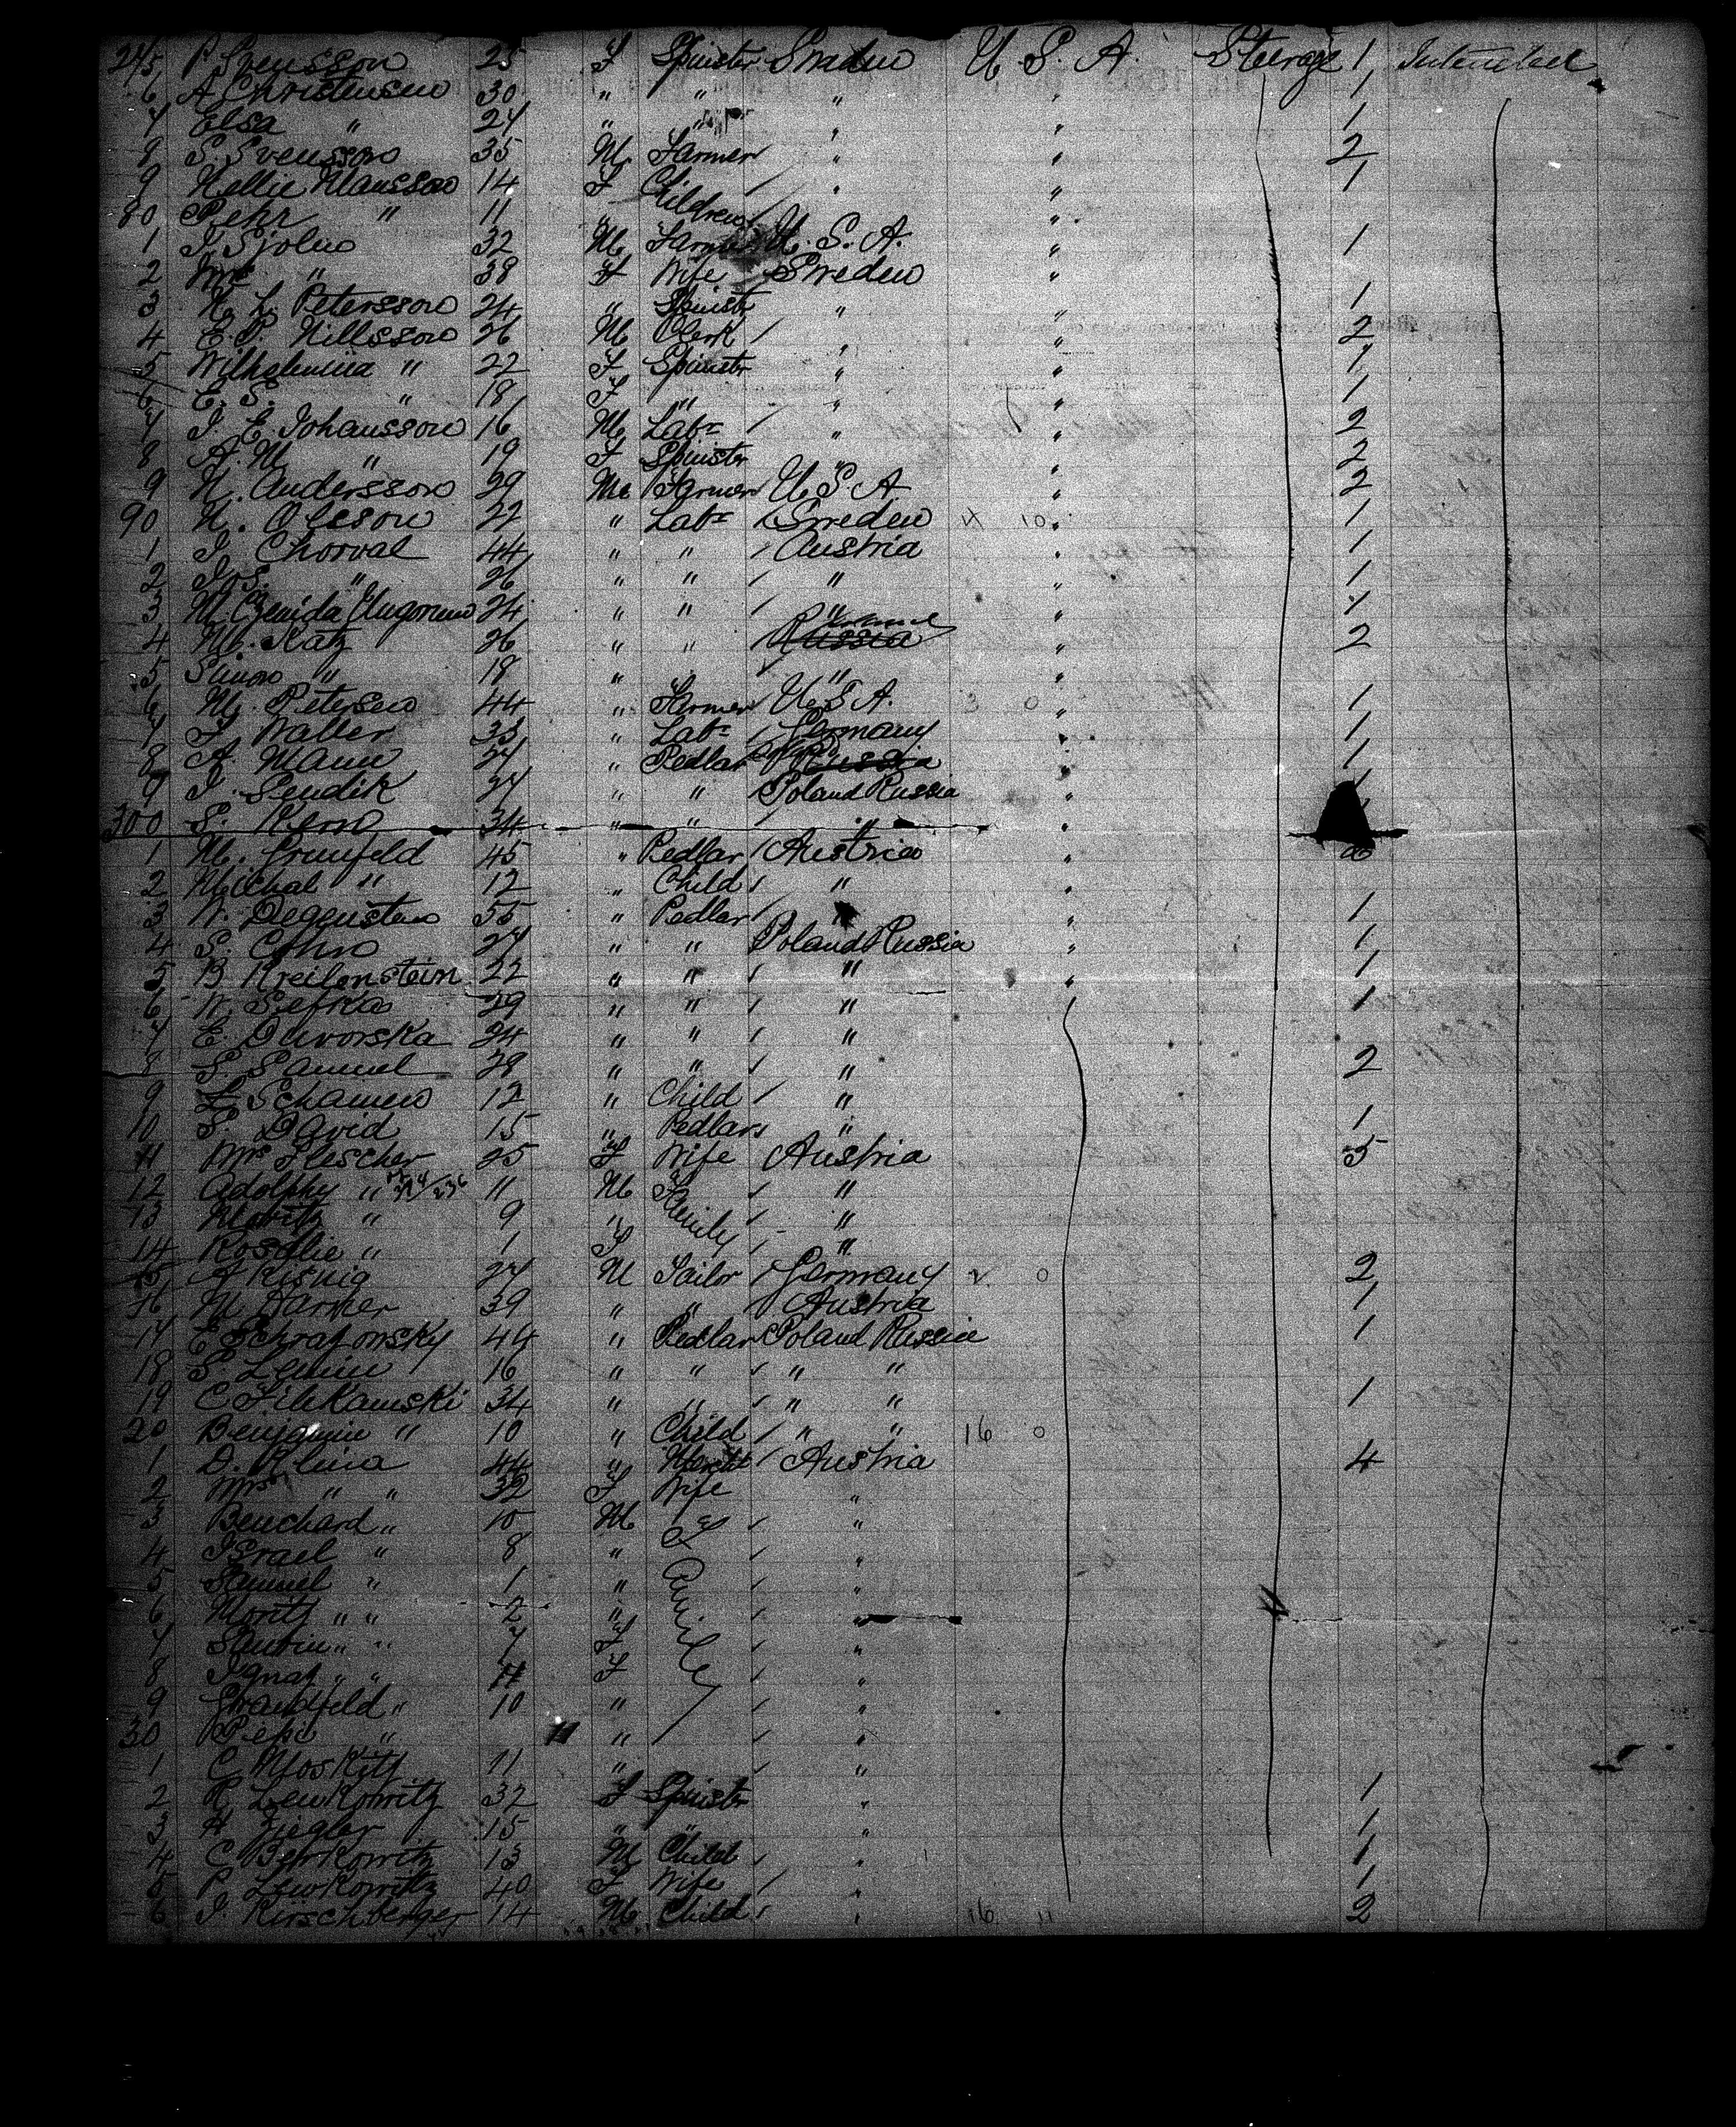 275 P Svensson 25 F Spinster Sweden U. S. A. Steerage 1
6 A Christensen 30 " " " " 1
7 Elsa " 24 " " " " 1
8 S. Svensson 35 M Farmer " " 2
9 Nellie Klausson 14 F Children " " 1
80 Pehr " 11 " " "
1 J Sjolin 32 M Farmer U. S. A. " 1
2 Mrs " 38 F Wife Sweden "
3 N. L. Petersson 24 " Spinster " " 1
4 E. P. Nillsson 26 M Clerk " " 2
5 Wilhelmina " 22 F Spinster " " 1
6 E. S. " 18 F " " " 1
7 J. E. Johansson 16 M Labr " " 2
8 A. M " 19 F Spinster " " 2
9 N. Andersson 29 M Farmer U. S. A " 2
90 N. Olsson 22 " Labr Sweden 10 " 1
1 J. Chorval 44 " " Austria " 1
2 Jos. " 26 " " " " 1
3 M. 24 " " " " 1
4 M. Katz 26 " " Russia " 2
5 Simon " 18 " " "
6 M. Petersen 44 " Farmer U. S. A. 3 0 " 1
7 J Walter 33 " Labr Germany " 1
8 A. Mann 27 " Pedlar Russia " 1
9 J. Sendik 27 " " Poland Russia "
300 S. Kern 34 " " " "
1 M. Grunfeld 45 " Pedlar Austria "
2 Michal " 12 " Child " "
3 N. Degenstein 55 " Pedlar " " 1
4 S. Cohn 27 " " Poland Russia " 1
5 B Kreilenstein 22 " " " " 1
6 N. Sefka 29 " " " 1
7 E. Duvorska 24 " " "
8 S. Samuel 28 " " " 2
9 Schamen 12 " Child "
10 S. David 15 " Pedlar " 1
11 Mrs Flescher 25 F Wife Austria 5
12 Adolphy " 11 M Family "
13 Moritz " 9 " "
14 Rosalie " 1 F "
15 A Kisnig 27 M Tailor Germany 2 0 2
16 M Harker 39 " " Austria 1
17 E Schrajonsky 44 " Pedlar Poland Russia 1
18 S Lewin 16 " " " "
19 C Filekamski 34 " " " " 1
20 Benjamin " 10 " Child " " 16 0
1 D. Klina 44 " Austria 4
2 Mrs " " 32 F Wife "
3 Benchard " 10 M & "
4 Israel " 8 " Family "
5 Samuel " 1 " "
6 Moritz " " 2 " "
7 " " 7 F "
8 Ignaz " " F "
9 Grandfeld " 10 " "
30 Pepi " " "
1 C Moskitz 11 " "
2 R Lewkowitz 32 F Spinster " 1
3 H Ziegler 15 " " " 1
4 C Berkowitz 13 M Child " 1
5 P Lewkowitz 40 F Wife " 1
6 J Kirschberger 14 M Child " 16 11 2